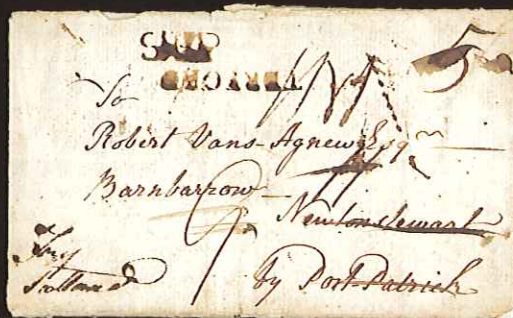 5
To
Robert Vans Agnew Esqr
Barnbarrow
Newton Stewart
by Port Patrick
Scotland